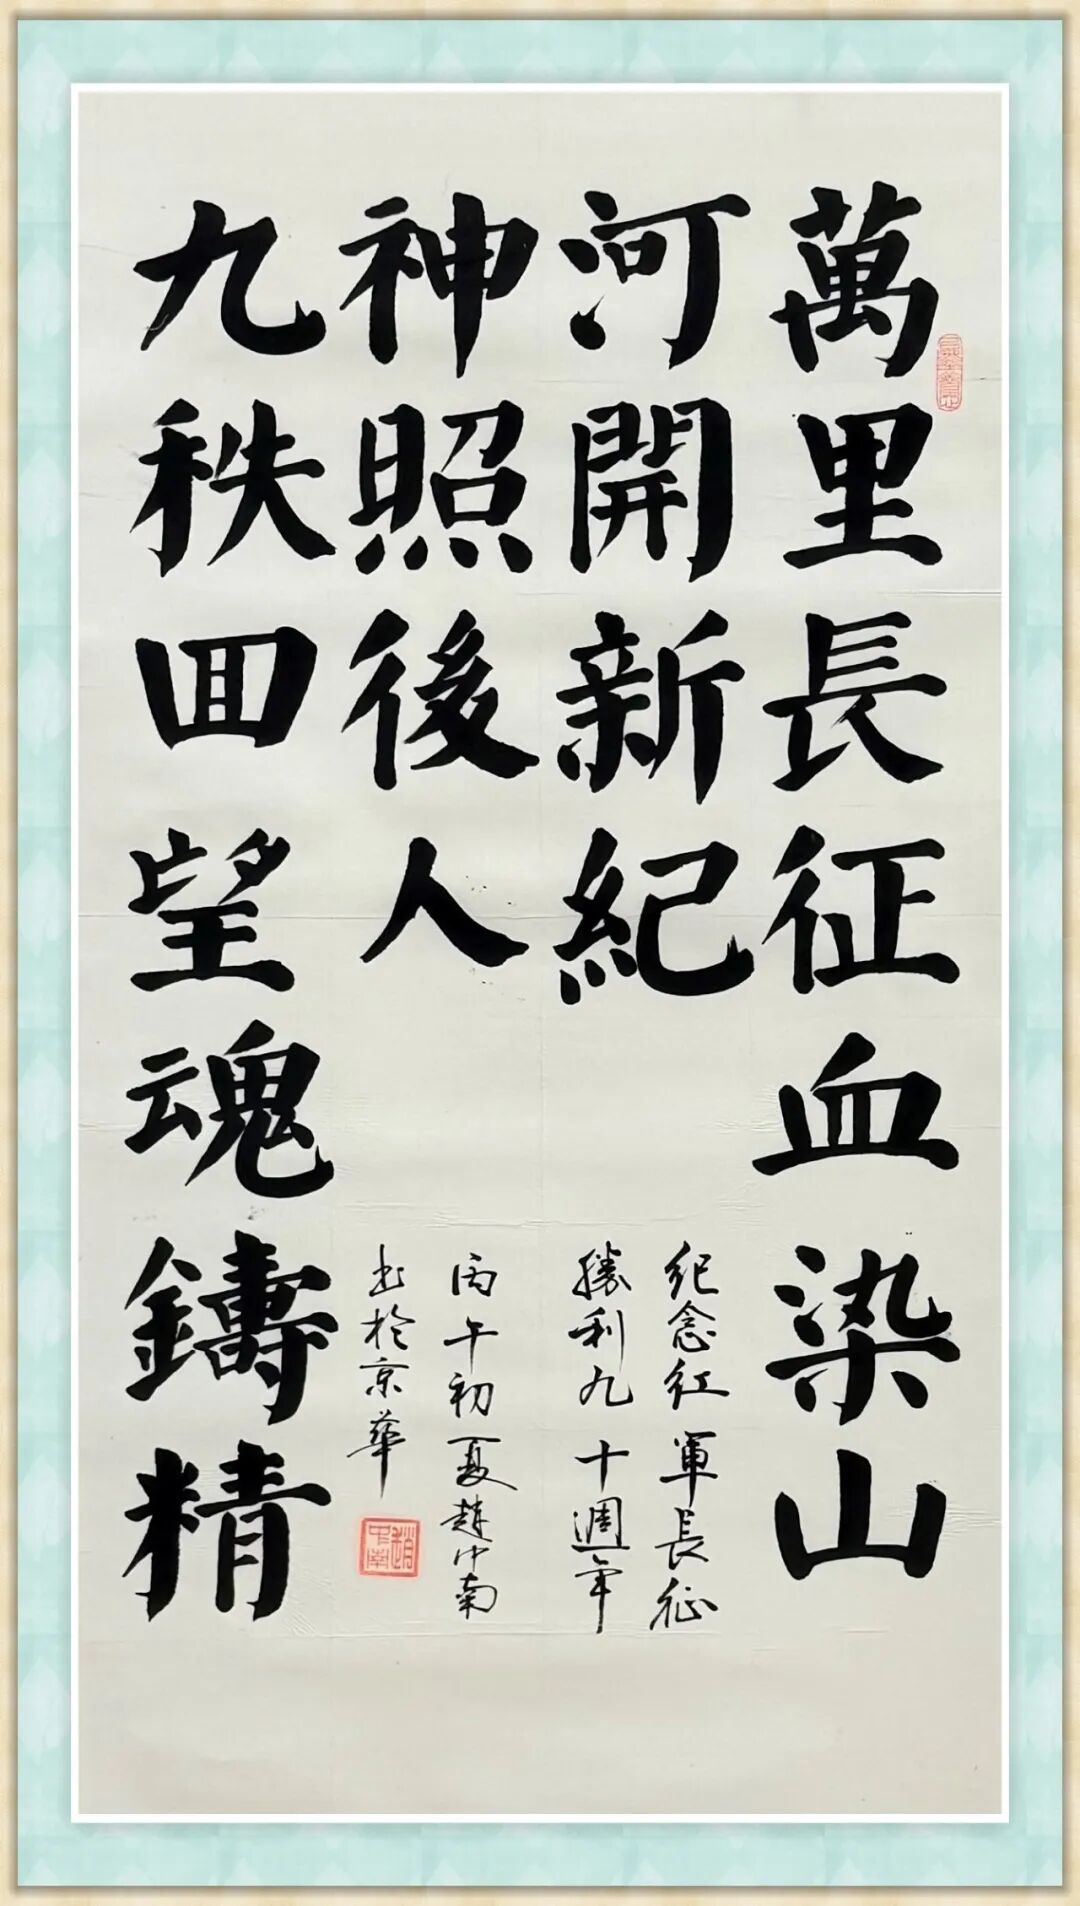 萬里長征血染山
河開新紀
九秩囬望魂鑄精
神照後人
纪念红軍長征
勝利九十週年
丙午初夏趙中南
书於京華
趙中南